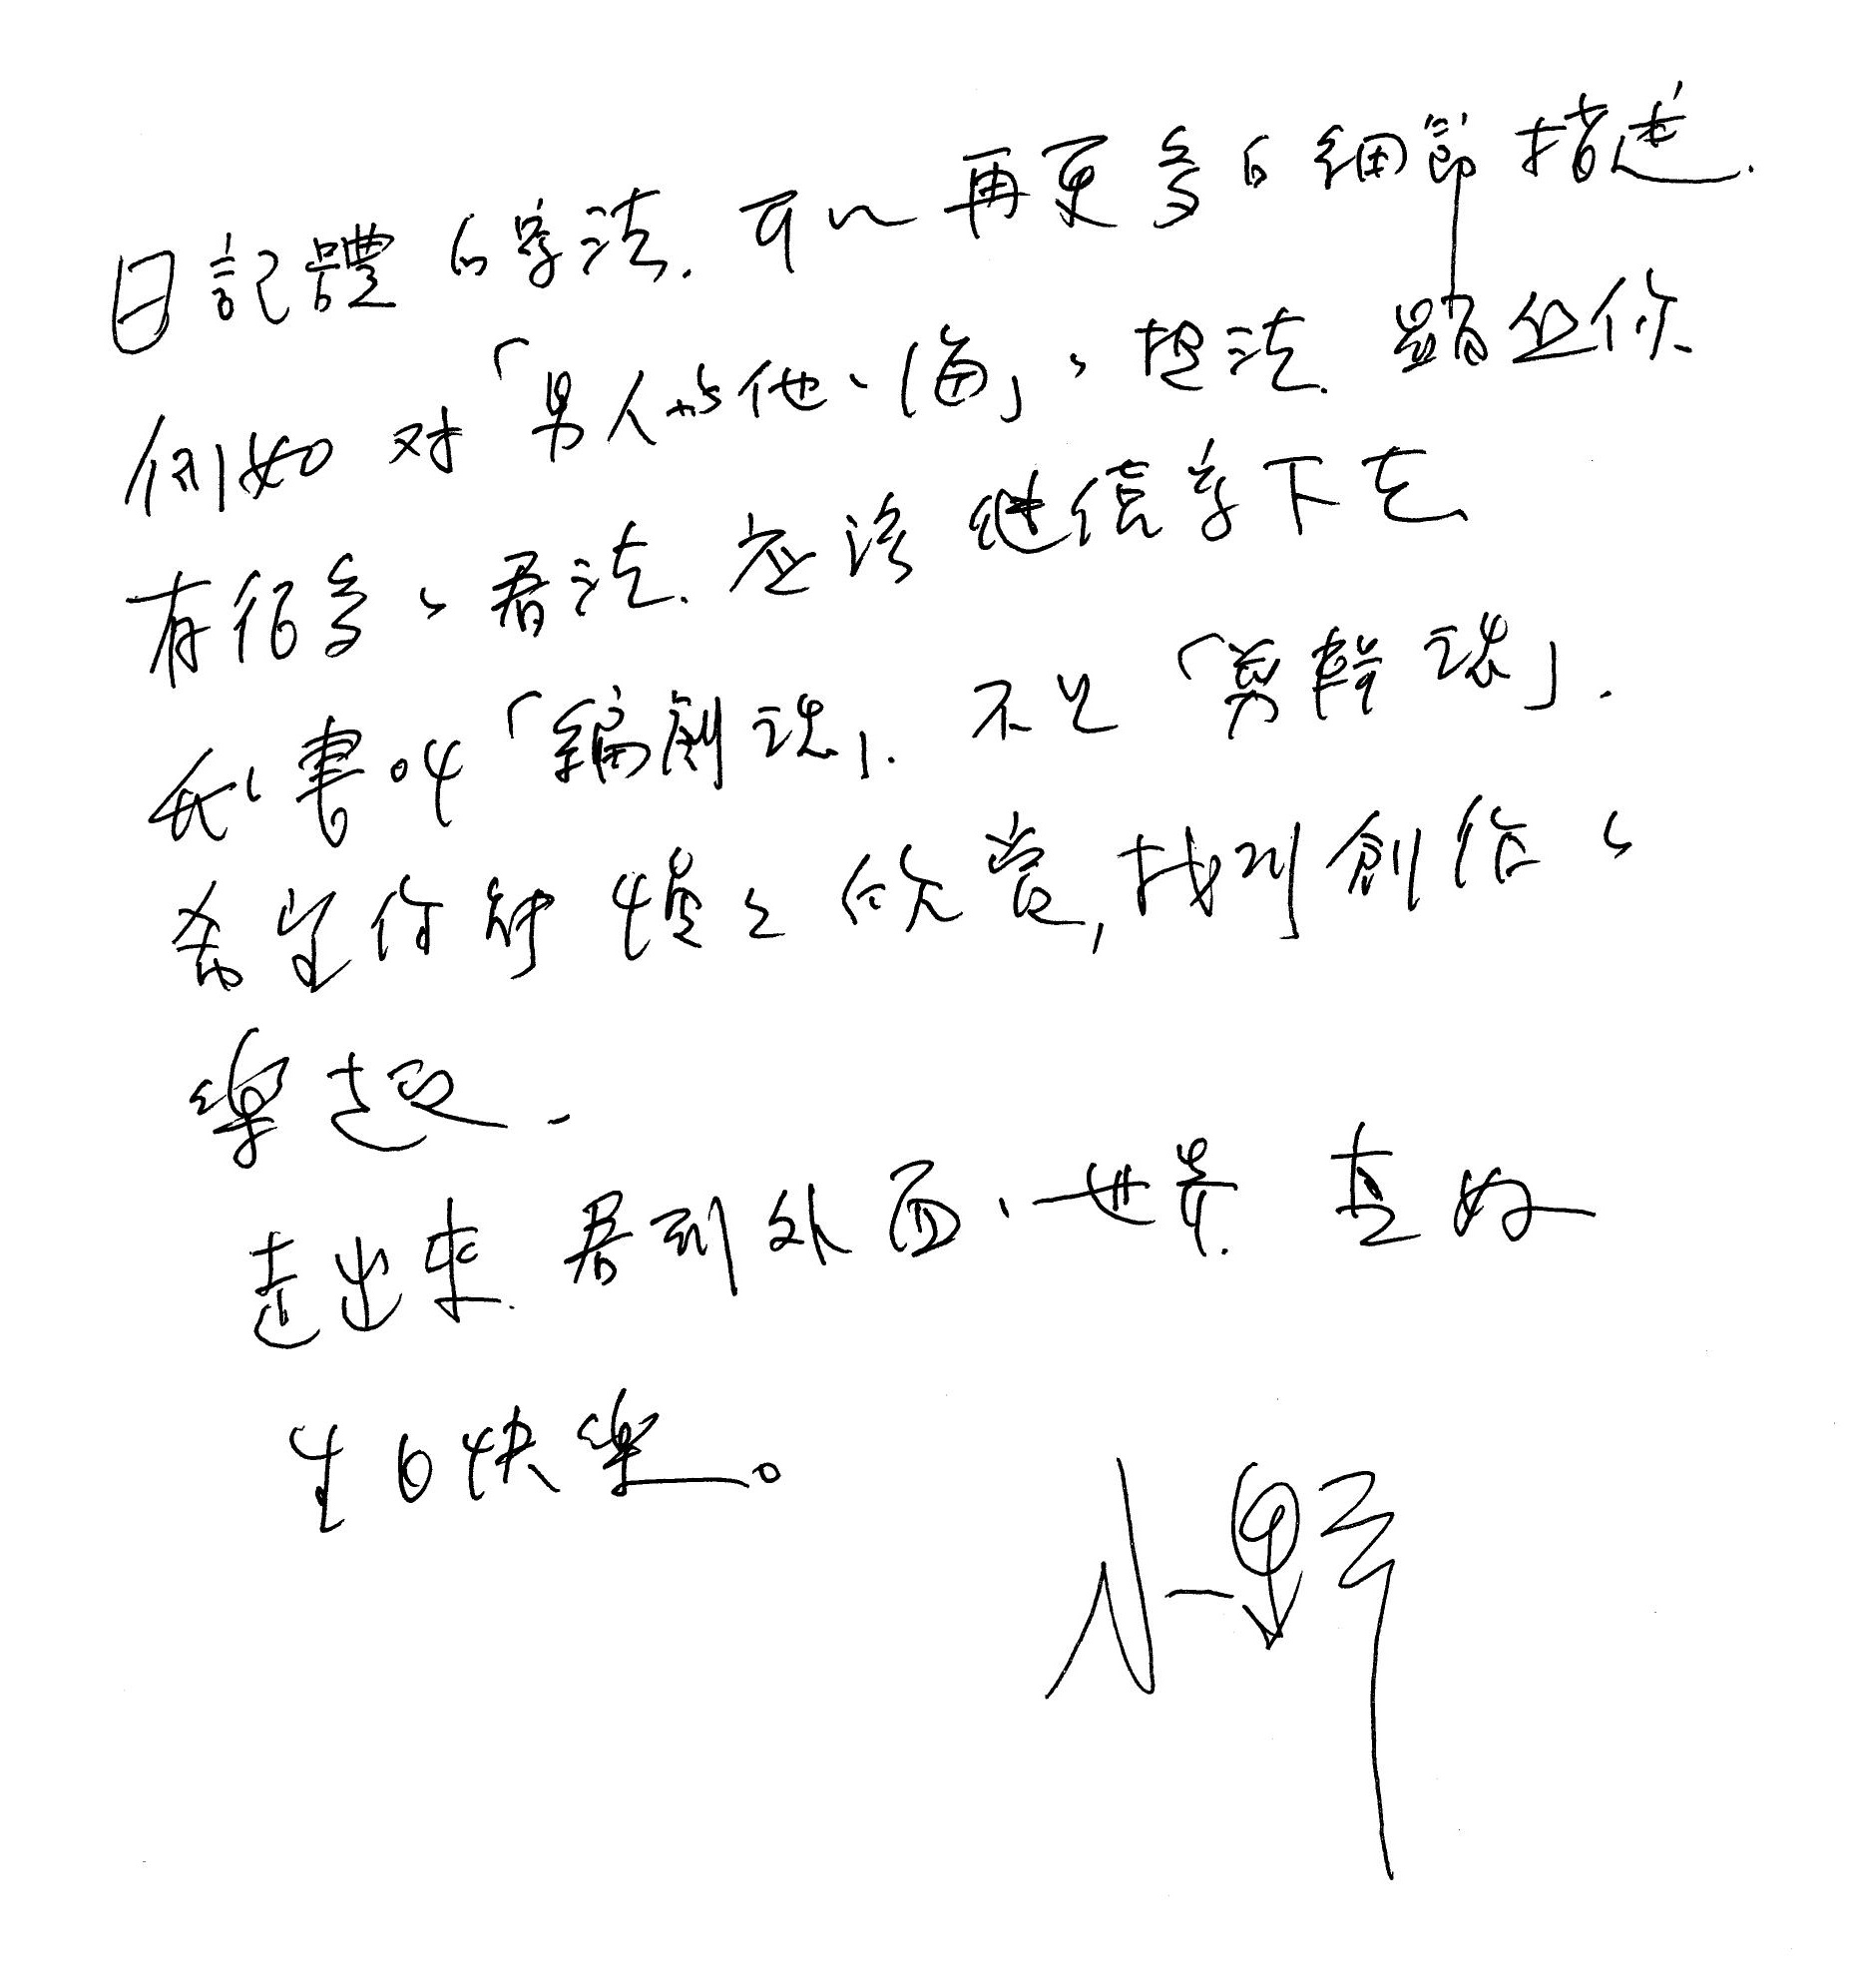 日記體的寫法.可以再更多的細節描述.
例如对「男人与他的海」的想法.顯出你
有很多的看法.应該继續寫下去
我的書叫「編劇課」.不是「剪輯課」.
希望你能慢慢欣賞,找到創作的
樂趣.
走出來.看到外面的世界.真好
生日快樂。
小野